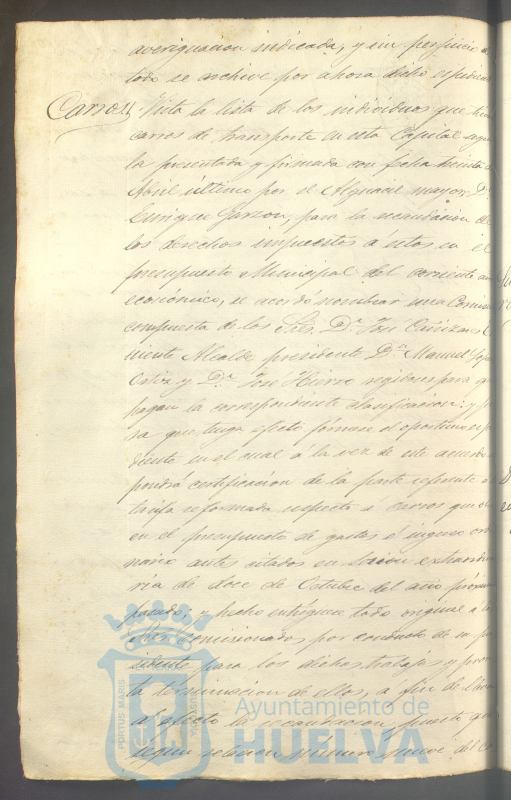 averiguacion indicada, y sin perjuicio de
todo se archive por ahora dicho espedien
Carros
Vista la lista de los individuos que tienen
carros de transporte en esta Capital segun
la presentada y firmada con fecha treinta de
Abril último por el Alguacil mayor Dn.
Enrique Garzon, para la recaudacion de
los derechos impuestos á estos en el
presupuesto Municipal del corriente año
económico, se acordó nombrar una Comision
compuesta de los Sres. Dn. José
niente Alcalde presidente Dn. Manuel
Ortiz y Dn. José Hierro regidores para que
hagan la correspondiente clasificacion: y pa
ra que tenga efecto fórmese el oportuno espe
diente en el cual á la vez de este acuerdo se
pondrá certificacion de la parte referente
tarifa reformada respecto á carros que
en el presupuesto de gastos é ingresos ordi
nario antes citados en sesion extraordina
ria de doce de Octubre del año próximo
pasado; y hecho entréguese todo original a los
Sres. Comisionados por conducto de su pre
sidente para los dichos trabajos y pron
ta terminacion de ellos, a fin de llevar
al efecto la recaudacion, puesto que
segun relacion número nueve del
PORTUS MARIS
Ayuntamiento de
HUELVA